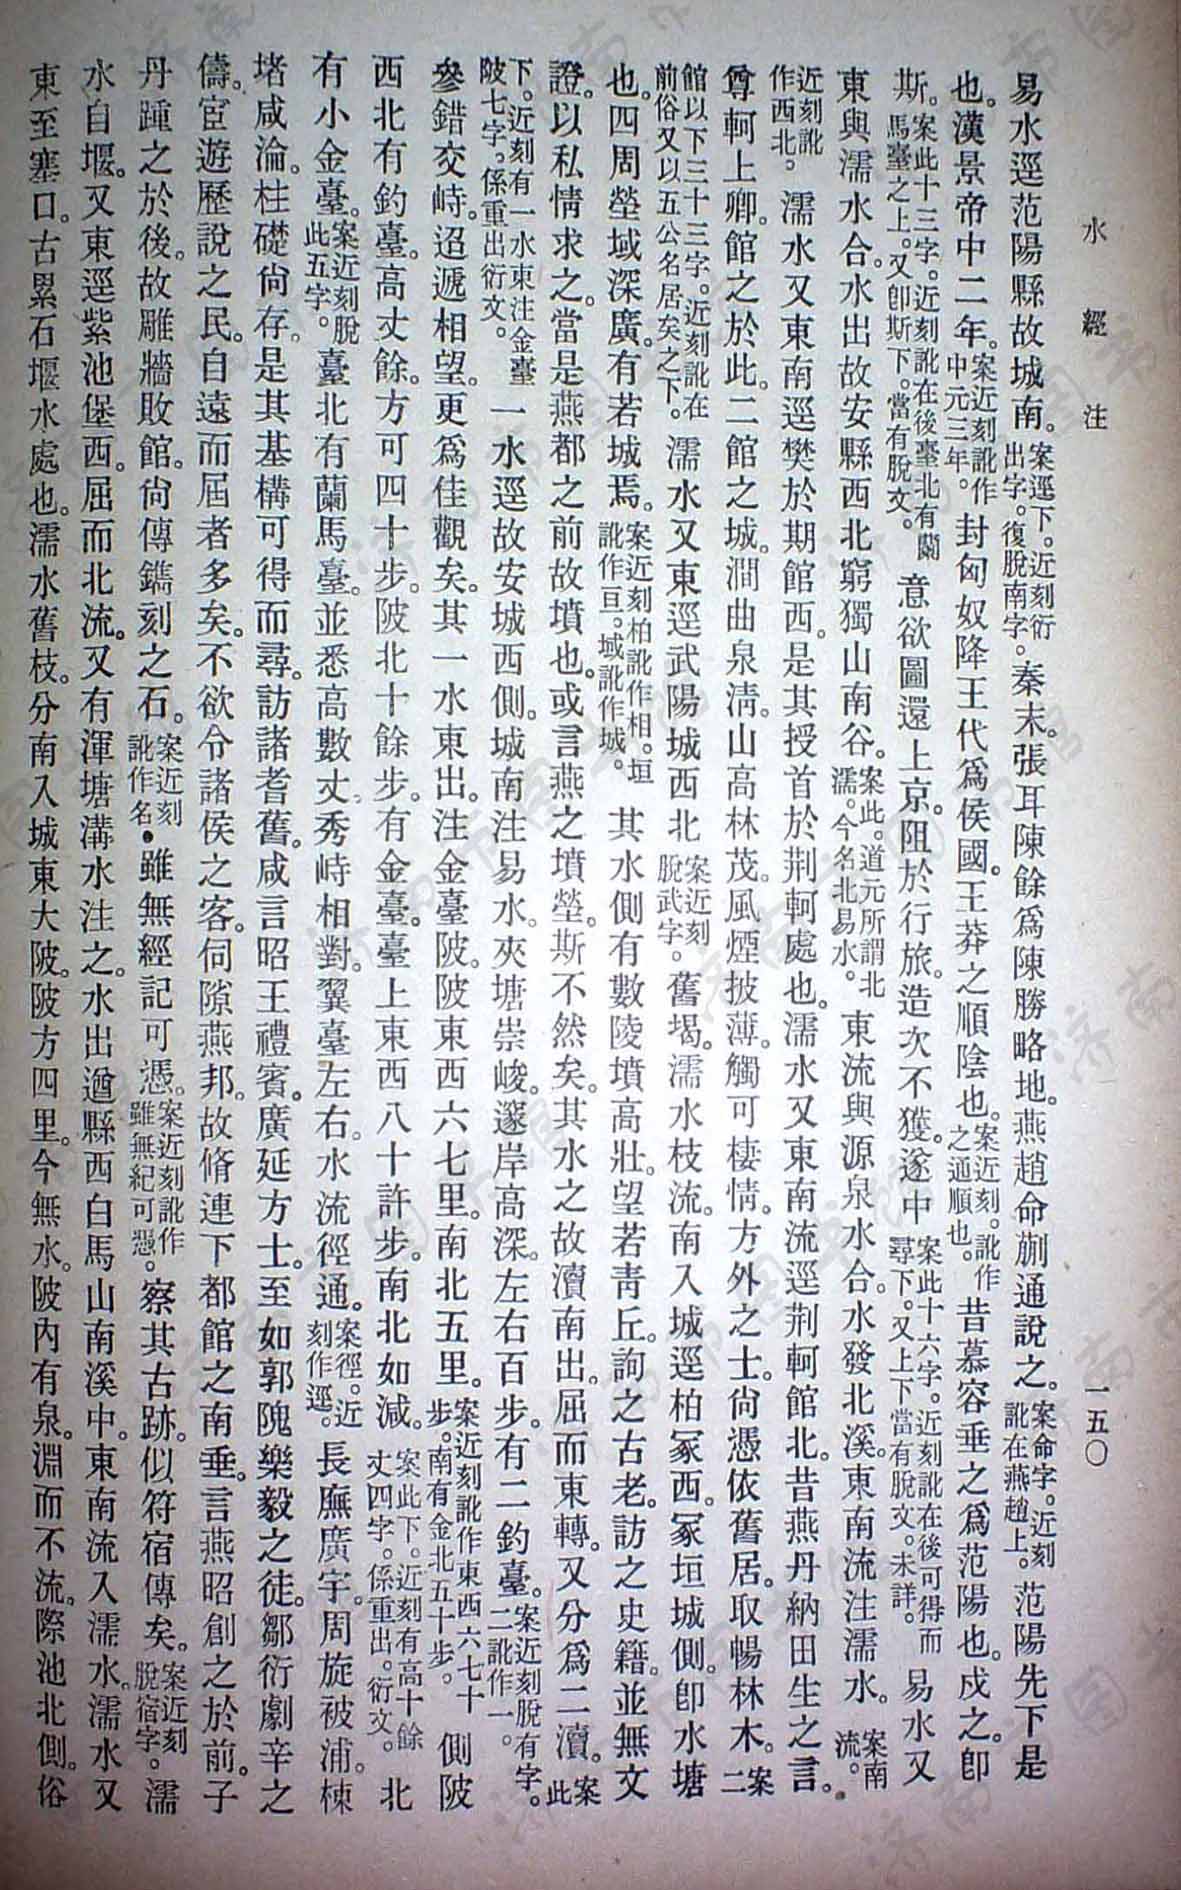 水經注
一五〇
易水逕范陽縣故城南。案逕下。近刻衍出字。復脫南字。秦末。張耳陳餘爲陳勝略地。燕趙命蒯通說之。案命字。近刻訛在燕趙上。范陽先下是
也。漢景帝中二年。案近刻訛作中元三年。封匈奴降王代爲侯國。王莽之順陰也。案近刻。訛作之通順也。昔慕容垂之爲范陽也。戍之。卽
斯。案此十三字。近刻訛在後臺北有闌馬臺之上。又卽斯下。當有脫文。意欲圖還上京。阻於行旅。造次不獲。遂中案此十六字。近刻訛在後可得而尋下。又上下當有脫文。未詳。易水又
東與濡水合。水出故安縣西北窮獨山南谷。案此。道元所謂北濡。今名北易水。東流與源泉水合。水發北溪。東南流注濡水。案南流。
近刻訛作西北。濡水又東南逕樊於期館西。是其授首於荆軻處也。濡水又東南流逕荆軻館北。昔燕丹納田生之言。
尊軻上卿。館之於此。二館之城。澗曲泉淸。山高林茂。風煙披薄。觸可棲情。方外之士。尙憑依舊居。取暢林木。案二
館以下三十三字。近刻訛在前俗又以五公名居矣之下。濡水又東逕武陽城西北案近刻脫武字。舊堨。濡水枝流。南入城逕柏冢西。冢垣城側。卽水塘
也。四周塋域深廣。有若城焉。案近刻柏訛作相。垣訛作亘。域訛作城。其水側有數陵墳高壯。望若靑丘。詢之古老。訪之史籍。並無文
證。以私情求之。當是燕都之前故墳也。或言燕之墳塋。斯不然矣。其水之故瀆南出。屈而東轉。又分爲二瀆。案此
下。近刻有一水東注金臺陂七字。係重出衍文。一水逕故安城西側。城南注易水。夾塘崇峻。邃岸高深。左右百步。有二釣臺。案近刻脫有字。二訛作一。
參錯交峙。迢遞相望。更爲佳觀矣。其一水東出。注金臺陂。陂東西六七里。南北五里。案近刻訛作東西六七十步。南有金北五十步。側陂
西北有釣臺。高丈餘。方可四十步。陂北十餘步。有金臺。臺上東西八十許步。南北如減。案此下。近刻有高十餘丈四字。係重出。衍文。北
有小金臺。案近刻脫此五字。臺北有蘭馬臺。並悉高數丈。秀峙相對。翼臺左右。水流徑通。案徑。近刻作逕。長廡廣宇。周旋被浦。棟
堵咸淪。柱礎尙存。是其基構可得而尋。訪諸耆舊。咸言昭王禮賓。廣延方士。至如郭隗樂毅之徒。鄒衍劇辛之
儔。宦遊歷說之民。自遠而屆者多矣。不欲令諸侯之客。伺隙燕邦。故脩連下都館之南垂。言燕昭創之於前。子
丹踵之於後。故雕牆敗館。尙傳鐫刻之石。案近刻訛作名。雖無經記可憑。案近刻訛作雖無紀可憑。察其古跡。似符宿傳矣。案近刻脫宿字。濡
水自堰。又東逕紫池堡西。屈而北流。又有渾塘溝水注之。水出遒縣西白馬山南溪中。東南流入濡水。濡水又
東至塞口。古累石堰水處也。濡水舊枝。分南入城東大陂。陂方四里。今無水。陂內有泉。淵而不流。際池北側。俗